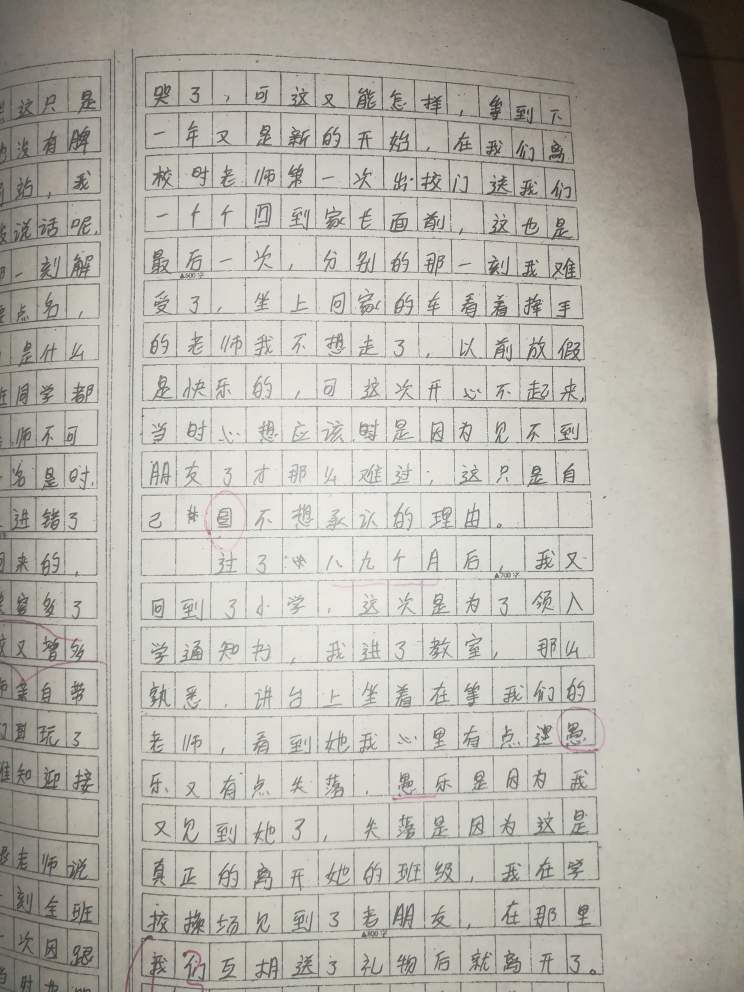 些这只是
的没有脾
站，我
说话呢，
一刻解
点名，
是什么
班同学都
师不可
名是时，
进错了
回来的，
教室多了
又增多
亲自带
们再玩了
谁知迎接
老师说
刻全班
一次因跟
哭了，可这又能怎样，等到下
一年又是新的开始，在我们离
校时老师第一次出校门送我们
一个个回到家长面前，这也是
最后一次，分别的那一刻我难
▲600字
受了，坐上回家的车看着挥手
的老师我不想走了，以前放假
是快乐的，可这次开心不起来，
当时心想应该时是因为见不到
朋友了才那么难过；这只是自
己不想承认的理由。
过了八九个月后，我又
▲700字
回到了小学，这次是为了领入
学通知书，我进了教室，那么
熟悉，讲台上坐着在等我们的
老师，看到她我心里有点愚
乐又有点失落，愚乐是因为我
又见到她了，失落是因为这是
真正的离开她的班级，我在学
校操场见到了老朋友，在那里
▲800字
我们互相送了礼物后就离开了。